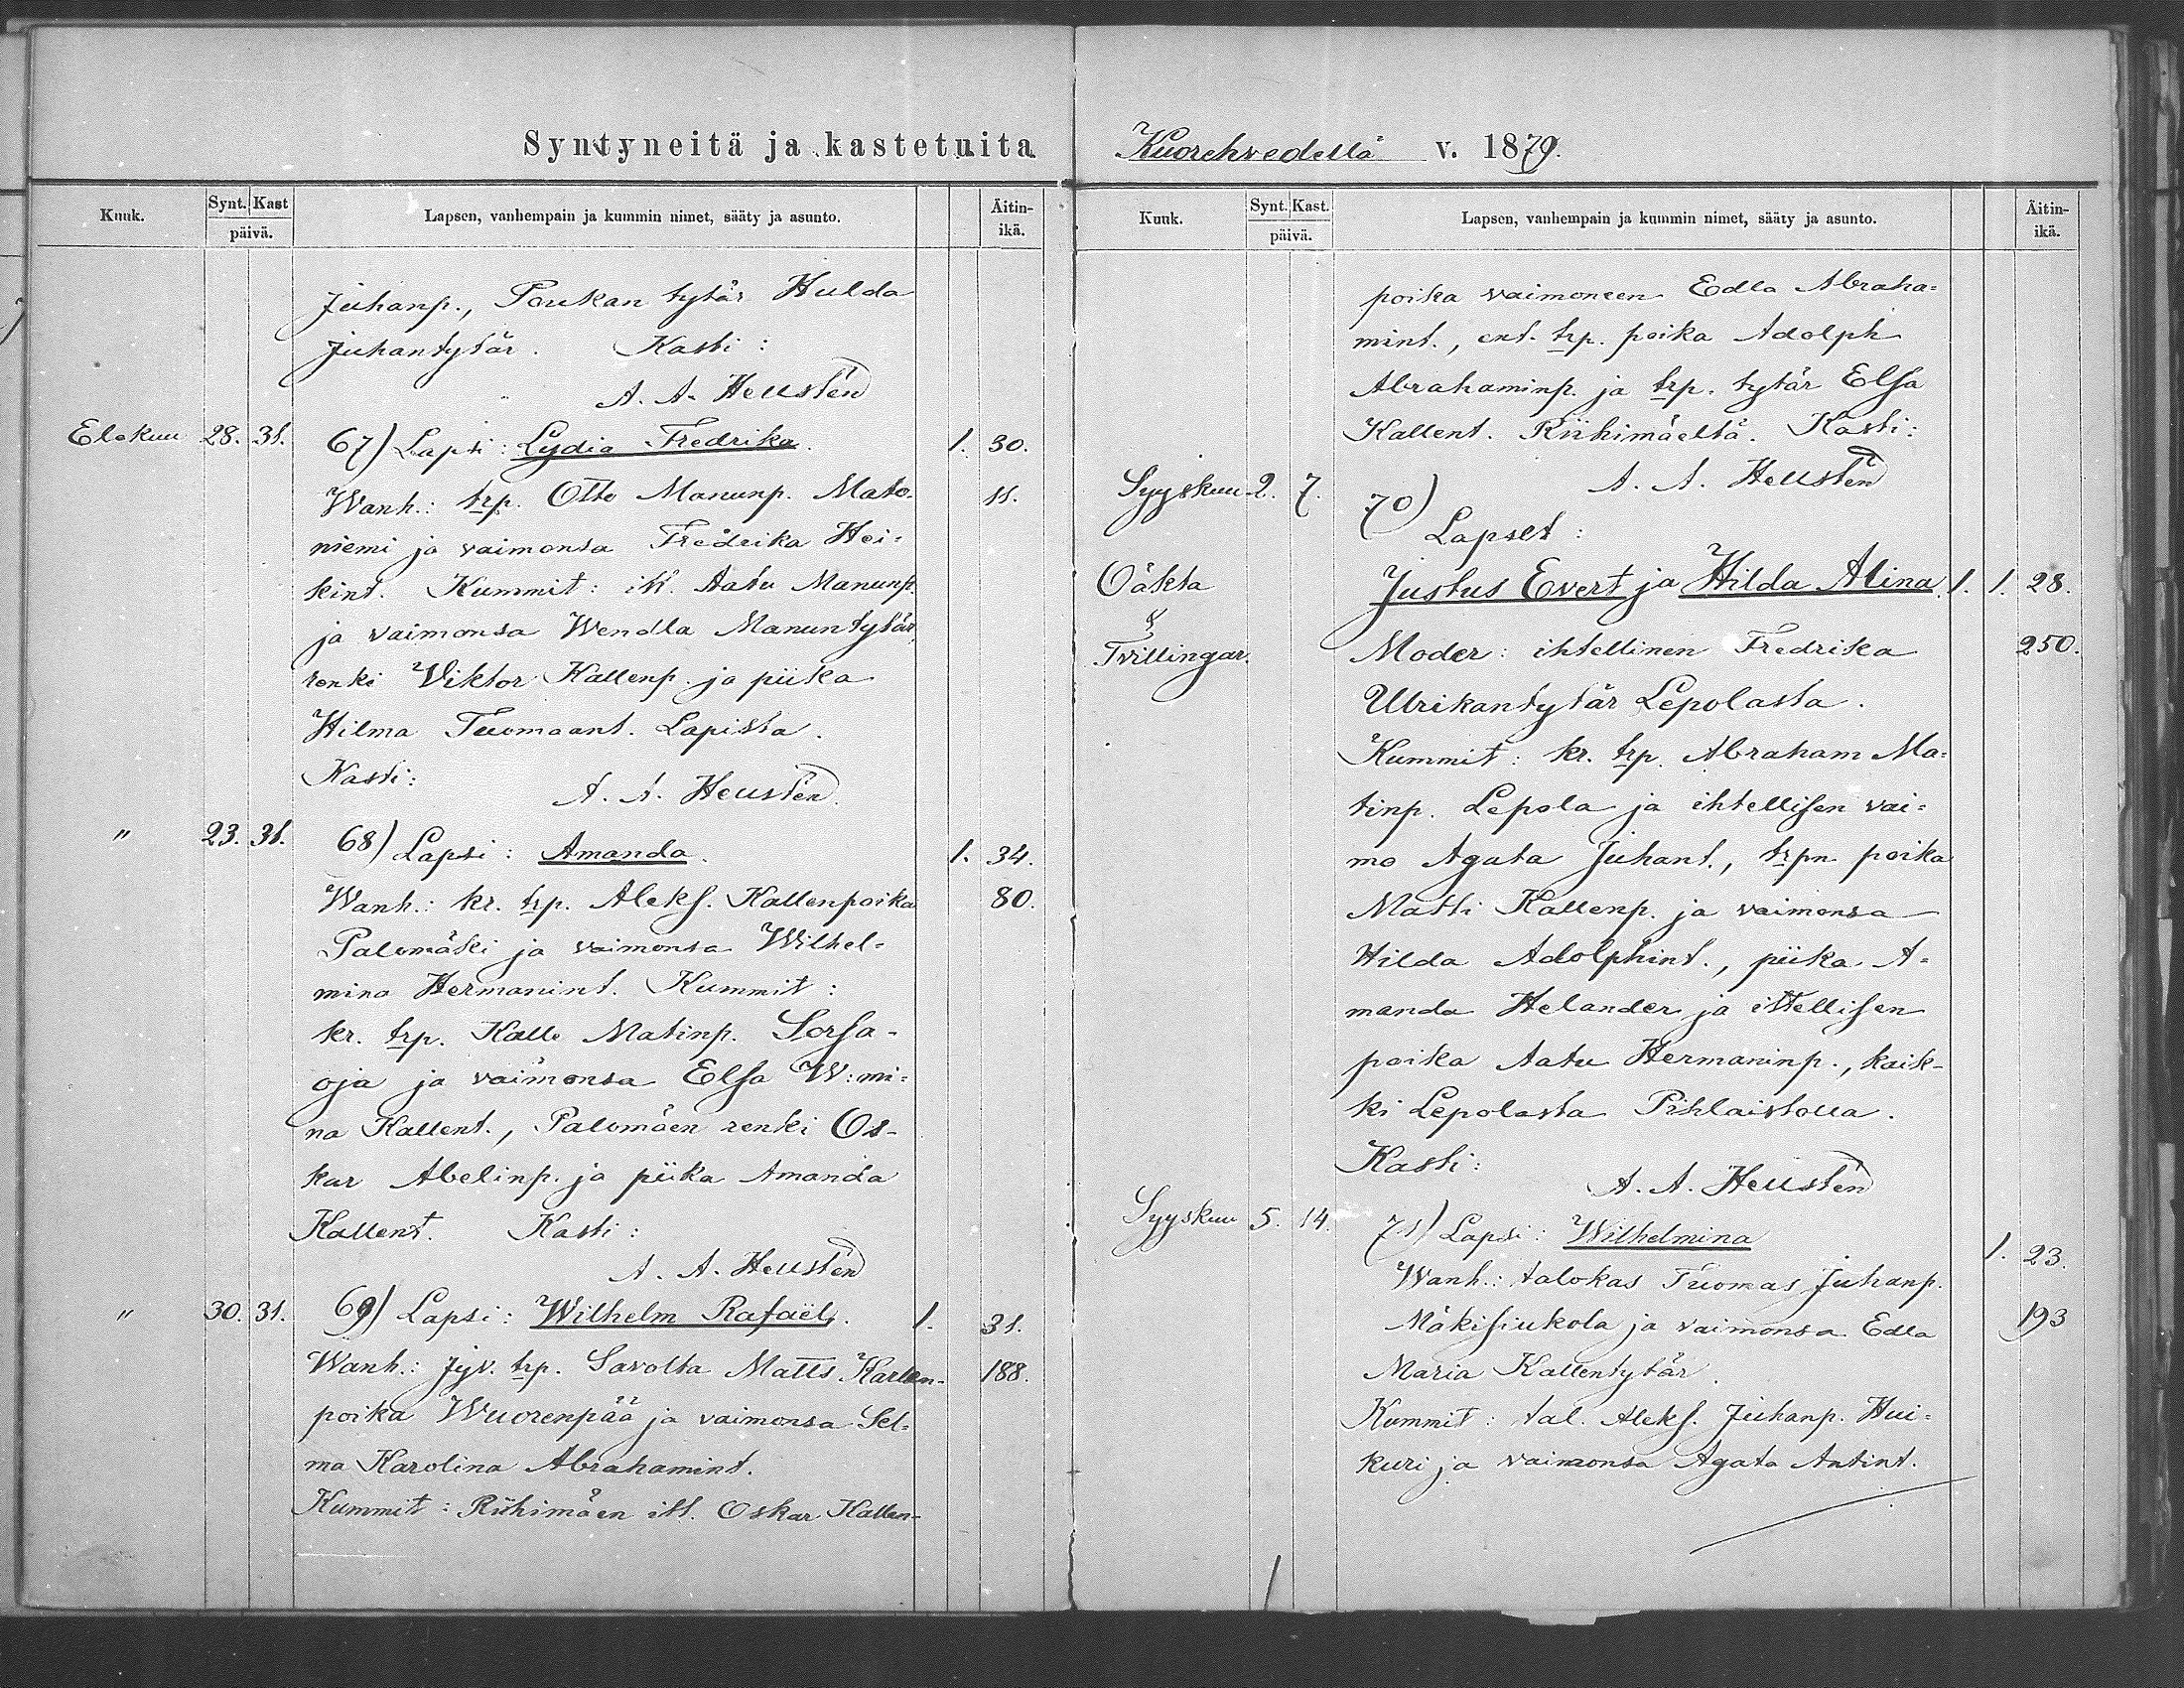 Syntyneitä ja kastetuita
Kuuk. Synt. Kast päivä. Lapsen, vanhempain ja kummin nimet, sääty ja asunto. Äitin-ikä.
Juhanp., Poukan tytär Hulda
Juhantytär. Kasti:
A. A. Hellstén
Elokuu 28. 31. 67) Lapsi: Lydia Fredrika. 1. 30.
Wanh.: trp. Otto Manunp. Mato- 11.
niemi ja vaimonsa Fredrika Hei-
kint. Kummit: itl. Aatu Manunp.
ja vaimonsa Wendla Manuntytär,
renki Viktor Kallenp. ja piika
Hilma Tuomaant. Lapista.
Kasti: A. A. Hellstén.
" 23. 31. 68) Lapsi: Amanda. 1. 34.
Wanh.: kr. trp. Aleks. Kallenpoika 80.
Palomäki ja vaimonsa Wilhel-
mina Hermanint. Kummit:
kr. trp. Kalle Matinp. Sorsa-
oja ja vaimonsa Elsa W:mi-
na Kallent., Palomäen renki Os-
kar Abelinp. ja piika Amanda
Kallent. Kasti:
A. A. Hellstén
" 30. 31. 69) Lapsi: Wilhelm Rafaël. 1. 31.
Wanh.: Jyv. trp. Savolta Matts Karlen- 188.
poika Wuorenpää ja vaimonsa Sel-
ma Karolina Abrahamint.
Kummit: Riihimäen itl. Oskar Kallen-
Kuorehvedellä v. 1879.
Kuuk. Synt. Kast. päivä. Lapsen, vanhempain ja kummin nimet, sääty ja asunto. Äitin-ikä.
poika vaimoneen Edla Abraha-
mint., ent. trp. poika Adolph
Abrahaminp. ja trp. tytär Elsa
Kallent. Riihimäeltä. Kasti:
A. A. Hellstén
Syyskuu 2. 7. 70)
Lapset:
Oäkta Justus Evert ja Hilda Alina. 1. 1. 28.
&
Tvillingar. Moder: ihtellinen Fredrika 250.
Ulrikantytär Lepolasta.
Kummit: kr. trp. Abraham Ma-
tinp. Lepola ja ihtellisen vai-
mo Agata Juhant., trpn poika
Matti Kallenp. ja vaimonsa
Hilda Adolphint., piika A-
manda Helander ja ittellisen
poika Aatu Hermaninp., kaik-
ki Lepolasta Pihlaistolla.
Kasti:
A. A. Hellstén
Syyskuu 5. 14. 71) Lapsi: Wilhelmina 1. 23.
Wanh.: talokas Tuomas Juhanp.
Mäkisiukola ja vaimonsa Edla 193
Maria Kallentytär.
Kummit: tal. Aleks. Juhanp. Hui-
kuri ja vaimonsa Agata Antint.